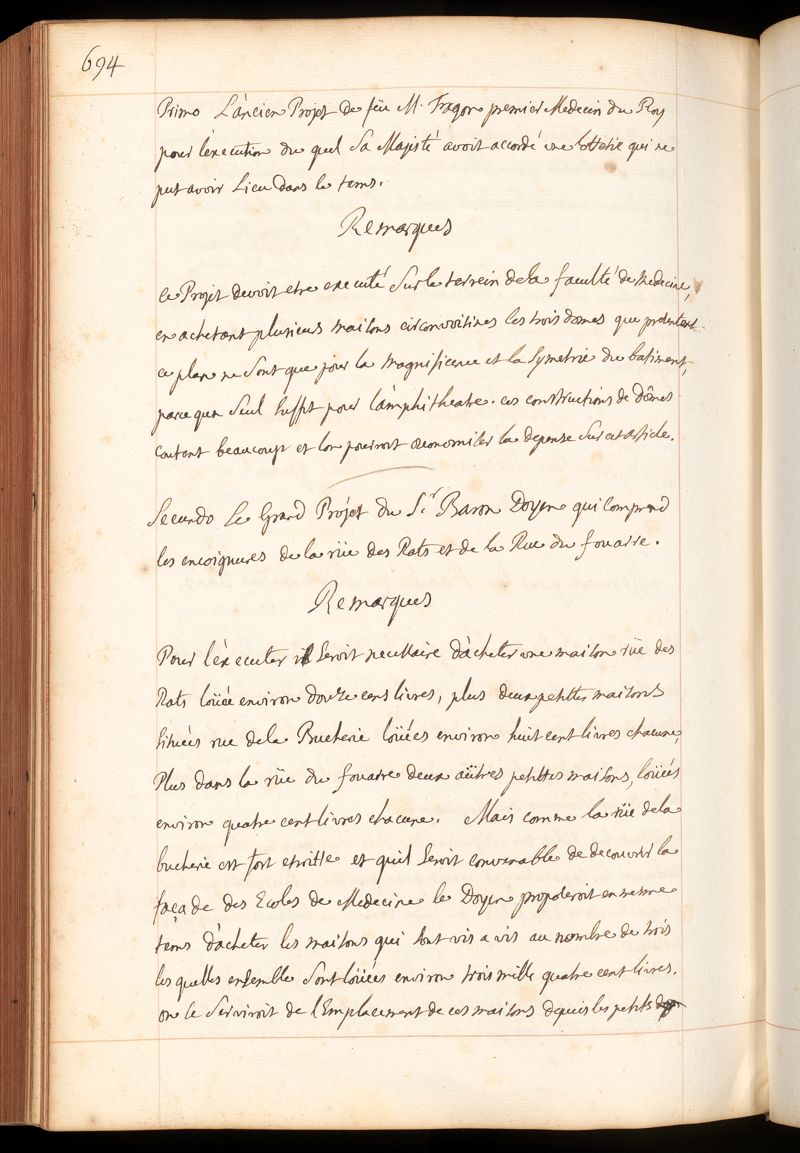 694
Primo L'ancien Projet de feü M. Fagon premier Medecin du Roy
pour l'execution du quel Sa Majesté avoit accordé une lotterie qui ne
put avoir Lieu dans le tems.
Remarques
ce Projet devoit etre executé Sur le terrein de la faculté de Medecine,
en achetant plusieurs maisons circonvoisines les trois dômes que presentent
ce plan ne Sont que pour la magnificence et la Symetrie du batiment,
parce qu'un Seul suffit pour l'amphitheatre. ces constructions de Dômes
coutent beaucoup et l'on pourroit œconomiser la depense Sur cet article.
Secundo Le Grand Projet du S.r Baron Doyen qui comprend
les encoignures de la rüe des Rats et de la Rue du fouarre.
Remarques
Pour l'éxecuter il Seroit necessaire d'acheter une maison rüe des
Rats loüée environ douze cens livres, plus deux petittes maisons
situées rue de la Bucherie loüées environ huit cent livres chacune,
Plus dans la rüe du fouarre deux aütres petittes maisons, loüées
environ quatre cent livres chacune. Mais comme la rüe de la
bucherie est fort etroitte et qu'il Seroit convenable de decouvrir la
façade des Ecoles de Medecine le Doyen proposeroit en mesme
tems d'acheter les maisons qui sont vis a vis au nombre de trois
les quelles ensemble Sont loüées environ trois mille quatre cent livres.
on se Serviroit de l'Emplacement de ces maisons depuis les petits